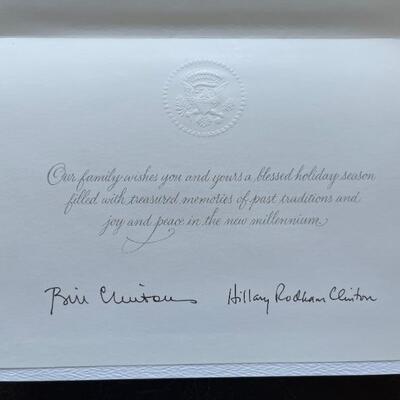 Our family wishes you and yours a blessed holiday season
filled with treasured memories of past traditions and
joy and peace in the new millennium.
Bill Clinton Hillary Rodham Clinton